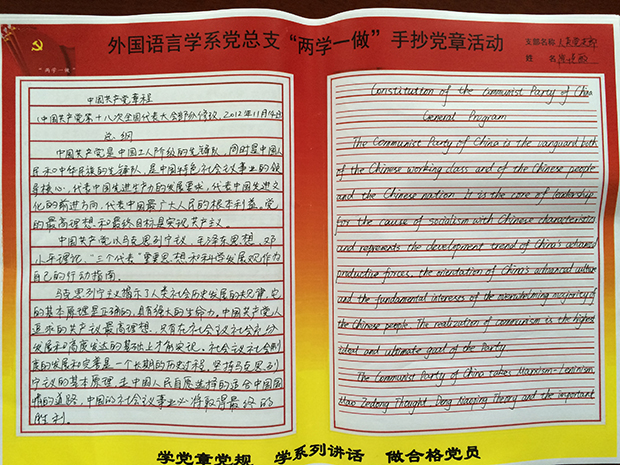 外国语言学系党总支“两学一做”手抄党章活动
支部名称
姓 名
“两学一做”
中国共产党章程
(中国共产党第十八次全国代表大会部分修改，2012年11月14日
总纲
中国共产党是中国工人阶级的先锋队，同时是中国人
民和中华民族的先锋队，是中国特色社会主义事业的领
导核心，代表中国先进生产力的发展要求，代表中国先进文
化的前进方向，代表中国最广大人民的根本利益。党
的最高理想和最终目标是实现共产主义。
中国共产党以马克思列宁主义、毛泽东思想、邓
小平理论、“三个代表”重要思想和科学发展观作为
自己的行动指南。
马克思列宁主义揭示了人类社会历史发展的规律，它
的基本原理是正确的，具有强大的生命力。中国共产党人
追求的共产主义最高理想，只有在社会主义社会充分
发展和高度发达的基础上才能实现。社会主义社会制
度的发展和完善是一个长期的历史过程。坚持马克思列
宁主义的基本原理，走中国人民自愿选择的适合中国国
情的道路，中国的社会主义事业必将取得最终的
胜利。
Constitution of the Communist Party of China
General Program
The Communist Party of China is the vanguard both
of the Chinese working class and of the Chinese people
and the Chinese nation. It is the core of leadership
for the cause of socialism with Chinese characteristics
and represents the development trend of China's advanced
productive forces, the orientation of China's advanced culture
and the fundamental interests of the overwhelming majority of
the Chinese people. The realization of communism is the highest
ideal and ultimate goal of the Party.
The Communist Party of China takes Marxism-Leninism,
Mao Zedong Thought, Deng Xiaoping Theory and the important
学党章党规 学系列讲话 做合格党员